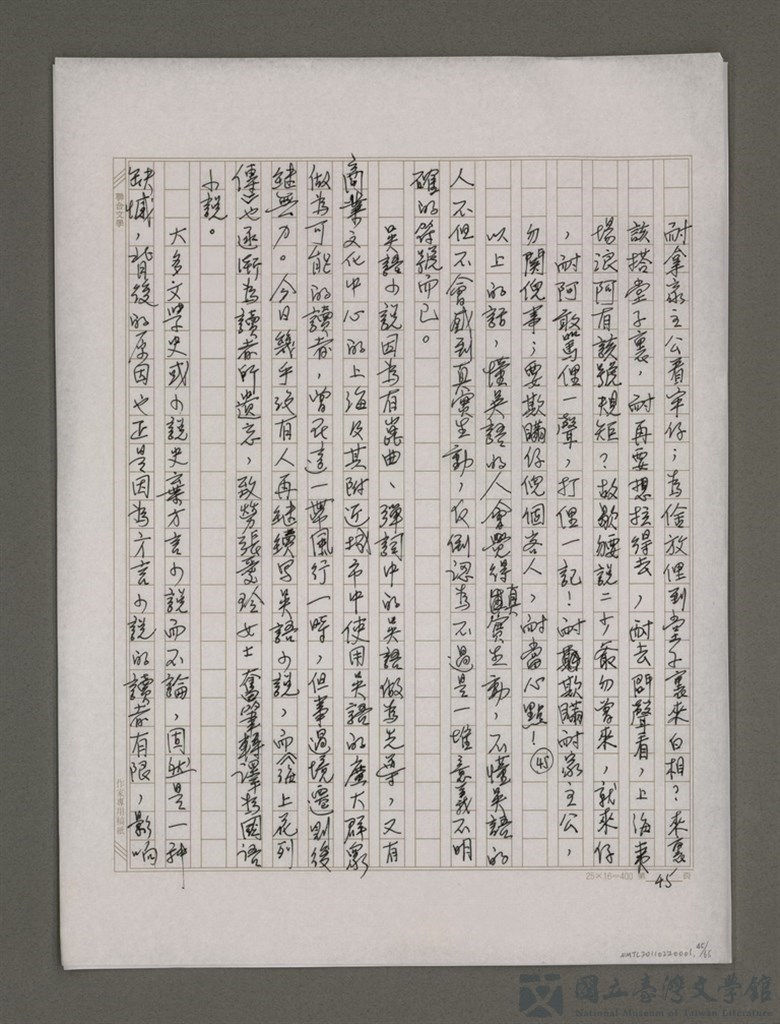 耐拿家主公看牢仔；為倽放俚到堂子裏來白相？來裏
該搭堂子裏，耐再要想拉得去，耐去問聲看，上海夷
場浪阿有該號規矩？故歇覅說二少爺勿曾來，就來仔
，耐阿敢罵俚一聲，打俚一記！耐欺瞞耐家主公，
勿關倪事；要欺瞞仔倪個客人，耐當心點！㊺
以上的話，懂吳語的人會覺得真實生動，不懂吳語的
人不但不會感到真實生動，反倒認為不過是一堆意義不明
確的符號而已。
吳語小說因為有崑曲、彈詞中的吳語做為先導，又有
商業文化中心的上海及其附近城市中使用吳語的廣大群眾
做為可能的讀者，曾在這一帶風行一時，但事過境遷則後
繼無力。今日幾乎沒有人再繼續寫吳語小說，而《海上花列
傳》也逐漸為讀者所遺忘，致勞張愛玲女士奮筆翻譯為國語
小說。
大多文學史或小說史棄方言小說而不論，固然是一種
缺憾，背後的原因也正是因為方言小說的讀者有限，影响
聯合文學
作家專用稿紙
25×16＝400 第 45 頁
NMTL20110220001, 45/55
國立臺灣文學館
National Museum of Taiwan Literature